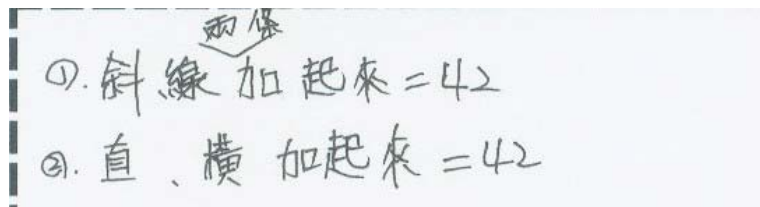 兩條
①. 斜線加起來=42
②. 直、橫加起來=42